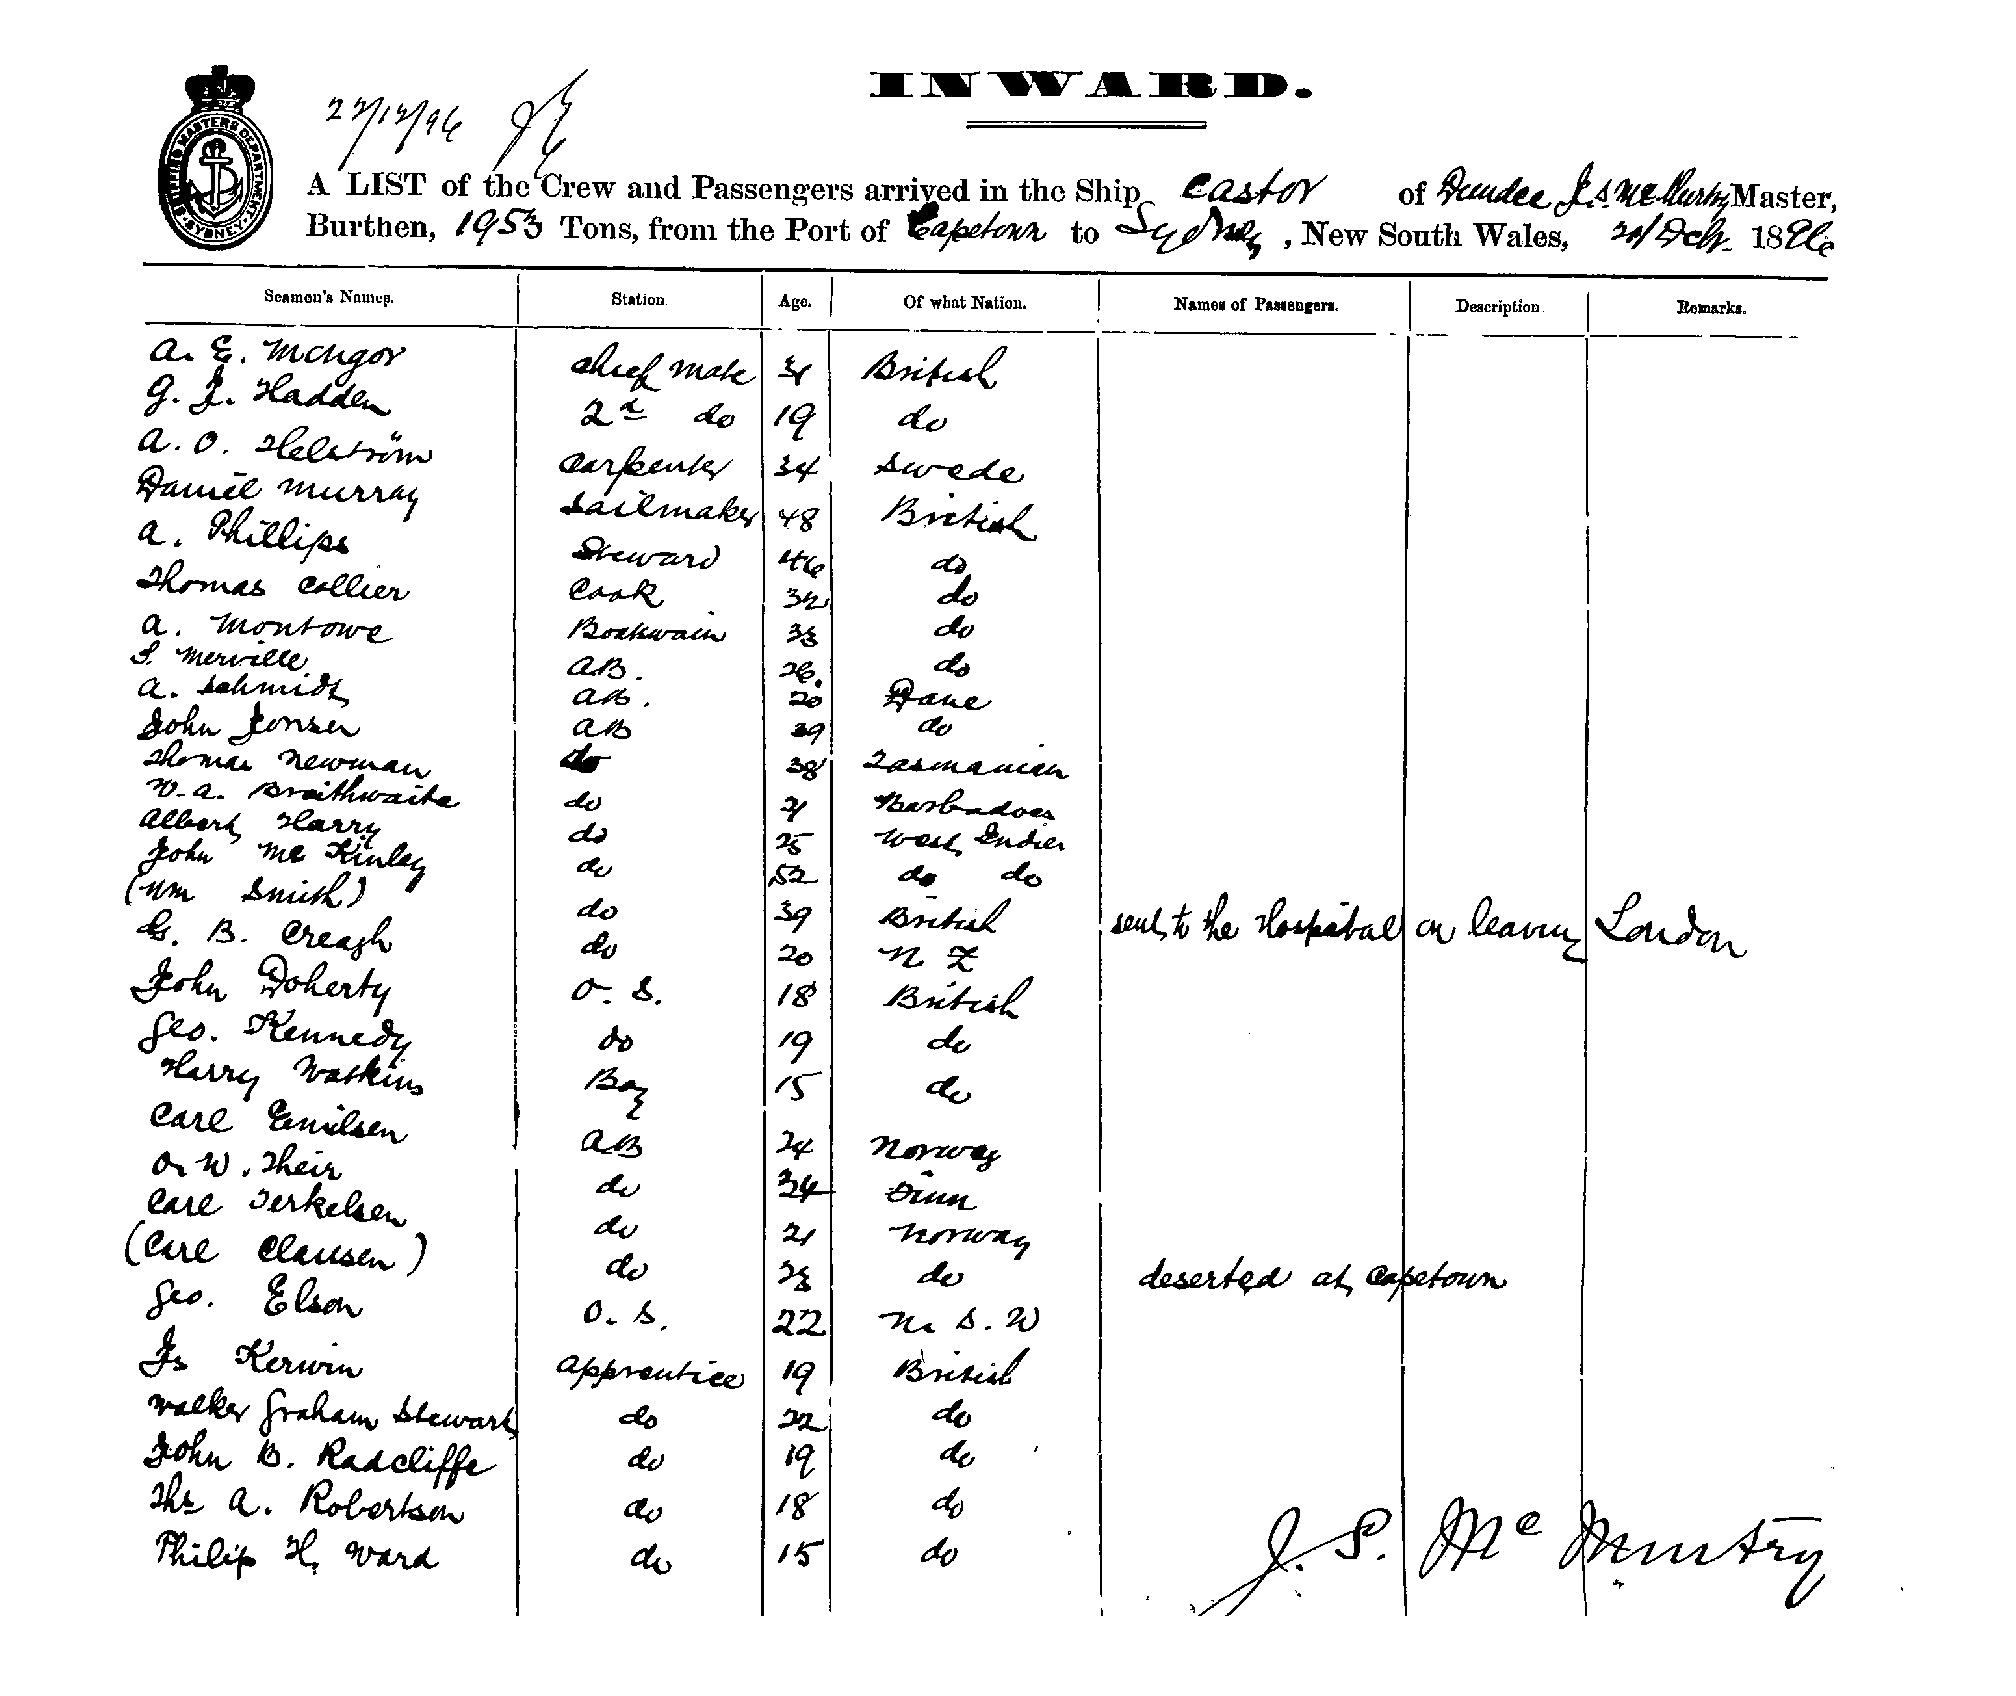 INWARD.
22/12/96
A LIST of the Crew and Passengers arrived in the Ship Castor of Dundee J. S. McMurtry Master,
Burthen, 1953 Tons, from the Port of Capetown to Sydney, New South Wales, 21/Decr. 1896
SHIPPING MASTERS DEPARTMENT SYDNEY
Seamen's Names. Station. Age. Of what Nation. Names of Passengers. Description. Remarks.
A. E. chief mate 31 British
G. J. Hadden 2d do 19 do
A. O. Helström Carpenter 34 Swede
Daniel Murray Sailmaker 48 British
A. Phillips Steward 46 do
Thomas Collier Cook 32 do
A. Montowe Boatswain 33 do
S. Merville AB. 26. do
A. Schmidt AB. 20 Dane
John Jonsen AB 39 do
Thomas Newman do 38 Tasmanian
W. A. Braithwaite do 21 Barbadoes
Albert Harry do 25 West Indies
John McKinley do 52 do do
(Wm Smith) do 39 British sent to the Hospital on leaving London
G. B. Creagh do 20 N Z
John Doherty O. S. 18 British
Geo. Kennedy do 19 do
Harry Watkins Boy 15 do
Carl Emilsen AB 24 Norway
O. W. Their do 34 Finn
Carl Terkelsen do 21 Norway
(Carl Clausen) do 23 do deserted at Capetown
Geo. Elson O. S. 22 N. S. W
Js Kerwin Apprentice 19 British
Walker Graham Stewart do 22 do
John B. Radcliffe do 19 do
Ths A. Robertson do 18 do
Philip H. Ward do 15 do
J. S. McMurtry